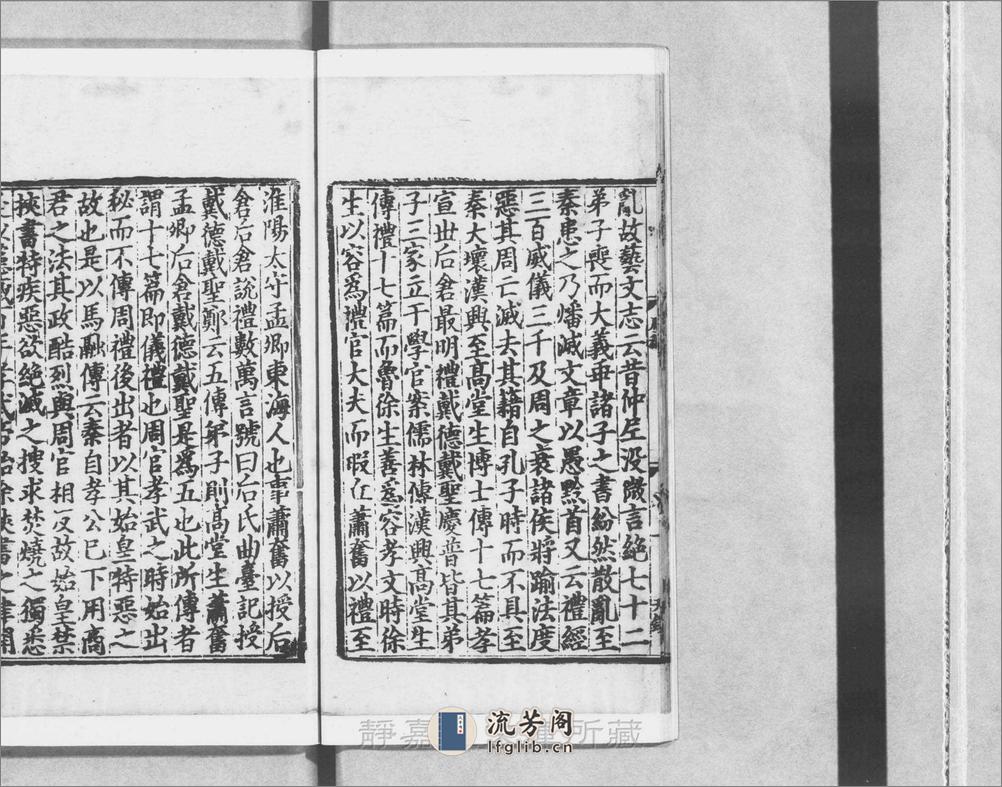 亂故藝文志云昔仲尼没微言絶七十二
弟子喪而大義乖諸子之書紛然散亂至
秦患之乃燔滅文章以愚黔首又云禮經
三百威儀三千及周之衰諸侯將踰法度
惡其周亡滅去其籍自孔子時而不具至
秦大壞漢興至髙堂生博士傳十七篇孝
宣世后倉最明禮戴德戴聖慶普皆其弟
子三家立于學官案儒林傳漢興髙堂生
傳禮十七篇而魯徐生善爲容孝文時徐
生以容爲禮官大夫而暇丘蕭奮以禮至
淮陽太守孟卿東海人也事蕭奮以授后
倉后倉説禮數萬言號曰后氏曲臺記授
戴德戴聖鄭云五傳弟子則髙堂生蕭奮
孟卿后倉戴德戴聖是爲五也此所傳者
謂十七篇即儀禮也周官孝武之時始出
秘而不傳周禮後出者以其始皇特惡之
故也是以馬融傳云秦自孝公已下用商
君之法其政酷烈與周官相反故始皇禁
挾書特疾惡欲絶滅之搜求焚燒之獨悉
靜嘉 所藏
流芳阁
lfglib.cn